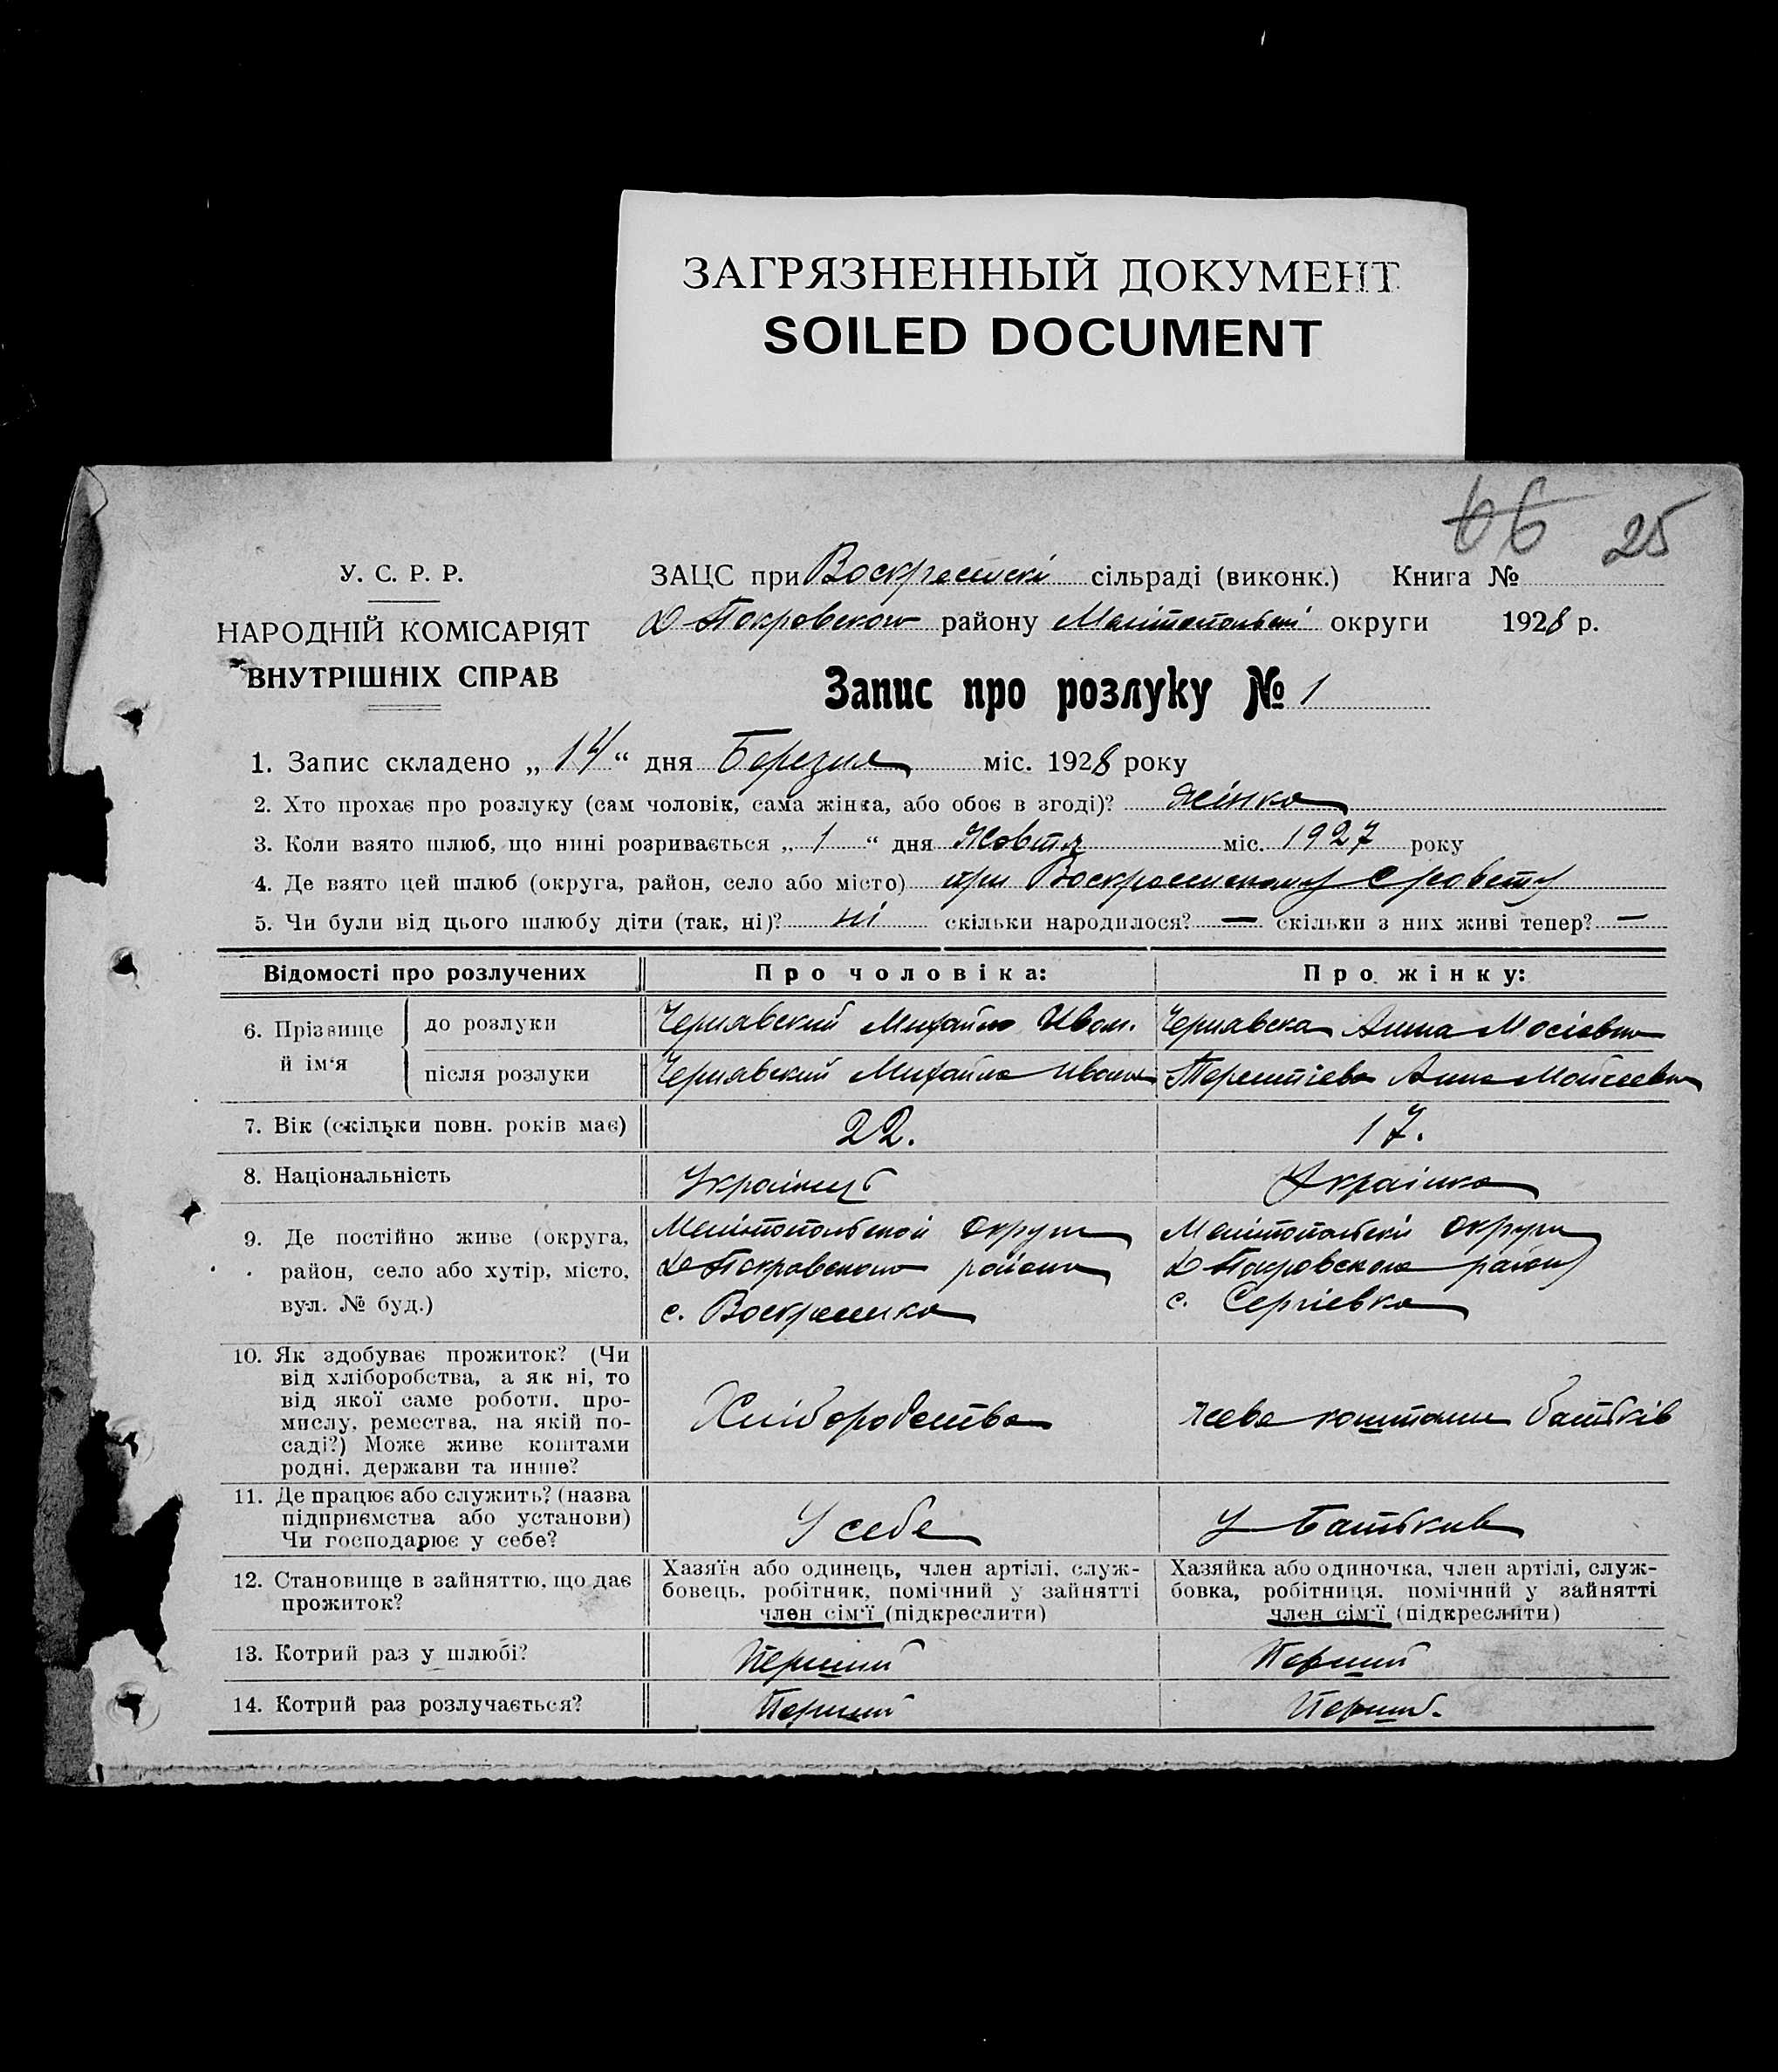 ЗАГРЯЗНЕННЫЙ ДОКУМЕНТ
SOILED DOCUMENT
66 25
У. С. Р. Р.
НАРОДНІЙ КОМІСАРІЯТ
ВНУТРІШНІХ СПРАВ
ЗАЦС при сільраді (виконк.) Книга №
району округи 1928 р.
Запис про розлуку № 1
1. Запис складено „ 14 “ дня Березня міс. 1928 року
2. Хто прохає про розлуку (сам чоловік, сама жінка, або обоє в згоді)? жінка
3. Коли взято шлюб, що нині розривається „ 1 “ дня Жовтя міс. 1927 року
4. Де взято цей шлюб (округа, район, село або місто) при
5. Чи були від цього шлюбу діти (так, ні)? ні скільки народилося? — скільки з них живі тепер? —
Відомості про розлучених Про чоловіка: Про жінку:
6. Прізвище й ім'я до розлуки Чернявский Михайло Іван. Чернявска Анна
після розлуки Чернявский Михайло Терентієва Анна
7. Вік (скільки повн. років має) 22. 17.
8. Національність Українець Українка
9. Де постійно живе (округа, Мелітопольской округи Мелітопольскій округи
район, село або хутір, місто, Покровського району Покровського району
вул. № буд.) с. Воскресенка с. Сергієвка
10. Як здобуває прожиток? (Чи
від хліборобства, а як ні, то
від якої саме роботи, про-
мислу, ремества, на якій по-
саді?) Може живе коштами
родні, держави та инше?
Хліборобство живе коштами батьків
11. Де працює або служить? (назва
підприємства або установи)
Чи господарює у себе?
У себе У Батьків
12. Становище в зайняттю, що дає
прожиток?
Хазяїн або одинець, член артілі, служ-
бовець, робітник, помічний у зайнятті
член сім'ї (підкреслити)
Хазяйка або одиночка, член артілі, служ-
бовка, робітниця, помічний у зайнятті
член сім'ї (підкреслити)
13. Котрий раз у шлюбі? Перший Перший
14. Котрий раз розлучається? Перший Перший.